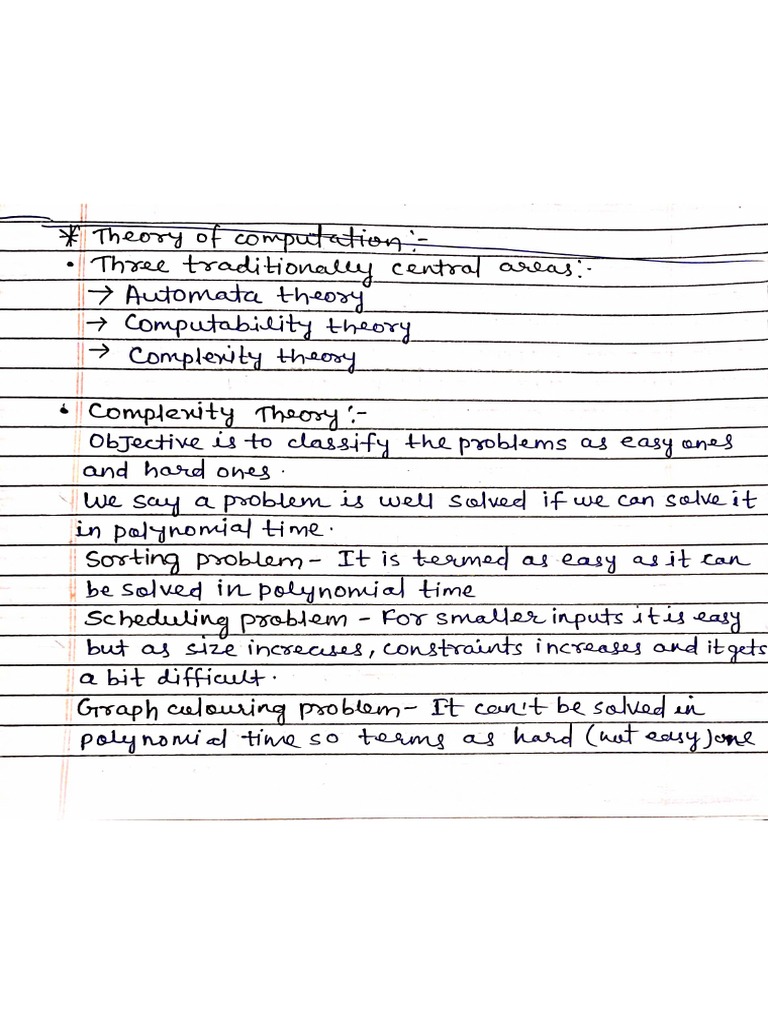 * Theory of computation:-
• Three traditionally central areas:-
→ Automata theory
→ Computability theory
→ Complexity theory
• Complexity Theory:-
Objective is to classify the problems as easy ones
and hard ones.
We say a problem is well solved if we can solve it
in polynomial time.
Sorting problem - It is termed as easy as it can
be solved in polynomial time
Scheduling problem - For smaller inputs it is easy
but as size increases, constraints increases and it gets
a bit difficult.
Graph colouring problem - It can't be solved in
polynomial time so terms as hard (not easy) one